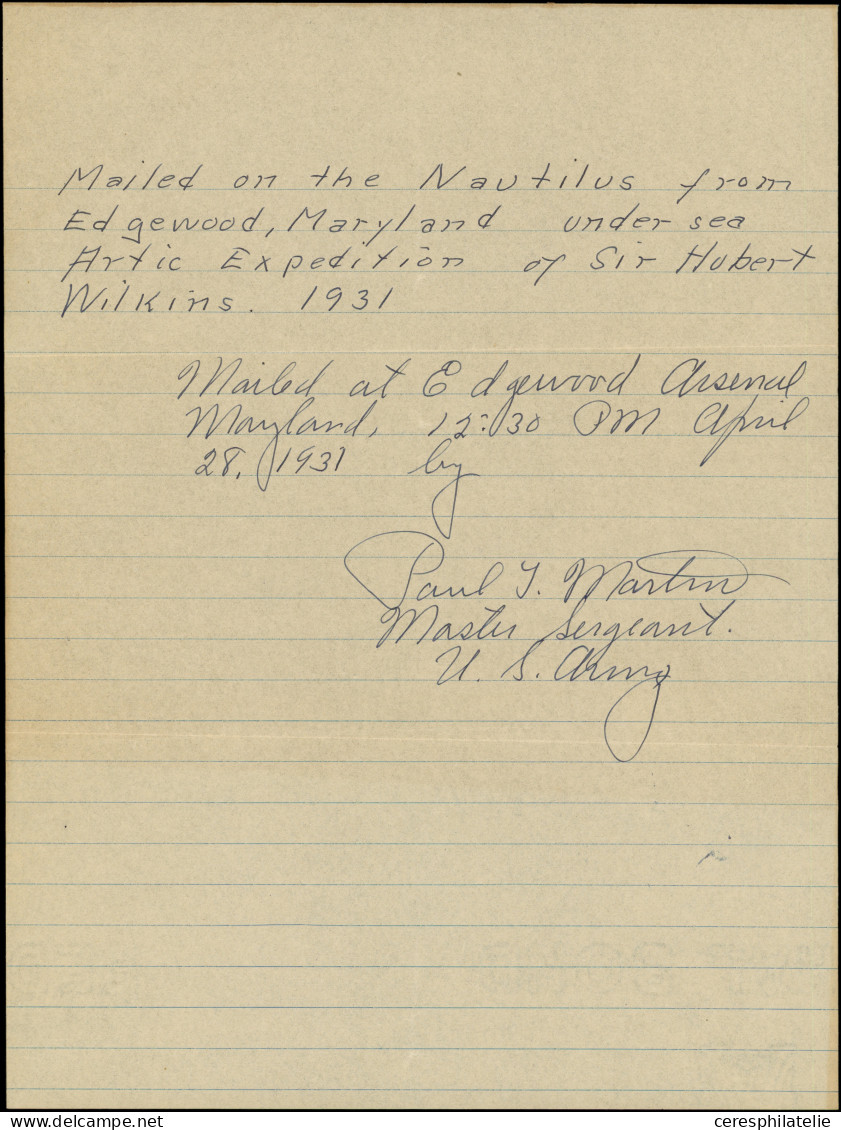 Mailed on the Nautilus from
Edgewood, Maryland under sea
Artic Expedition of Sir Hubert
Wilkins. 1931
Mailed at Edgewood Arsenal
Mayland, 12:30 PM April
28, 1931 by
Paul J. Martin
Master Sergeant.
U. S. Army
ceresphilatelie